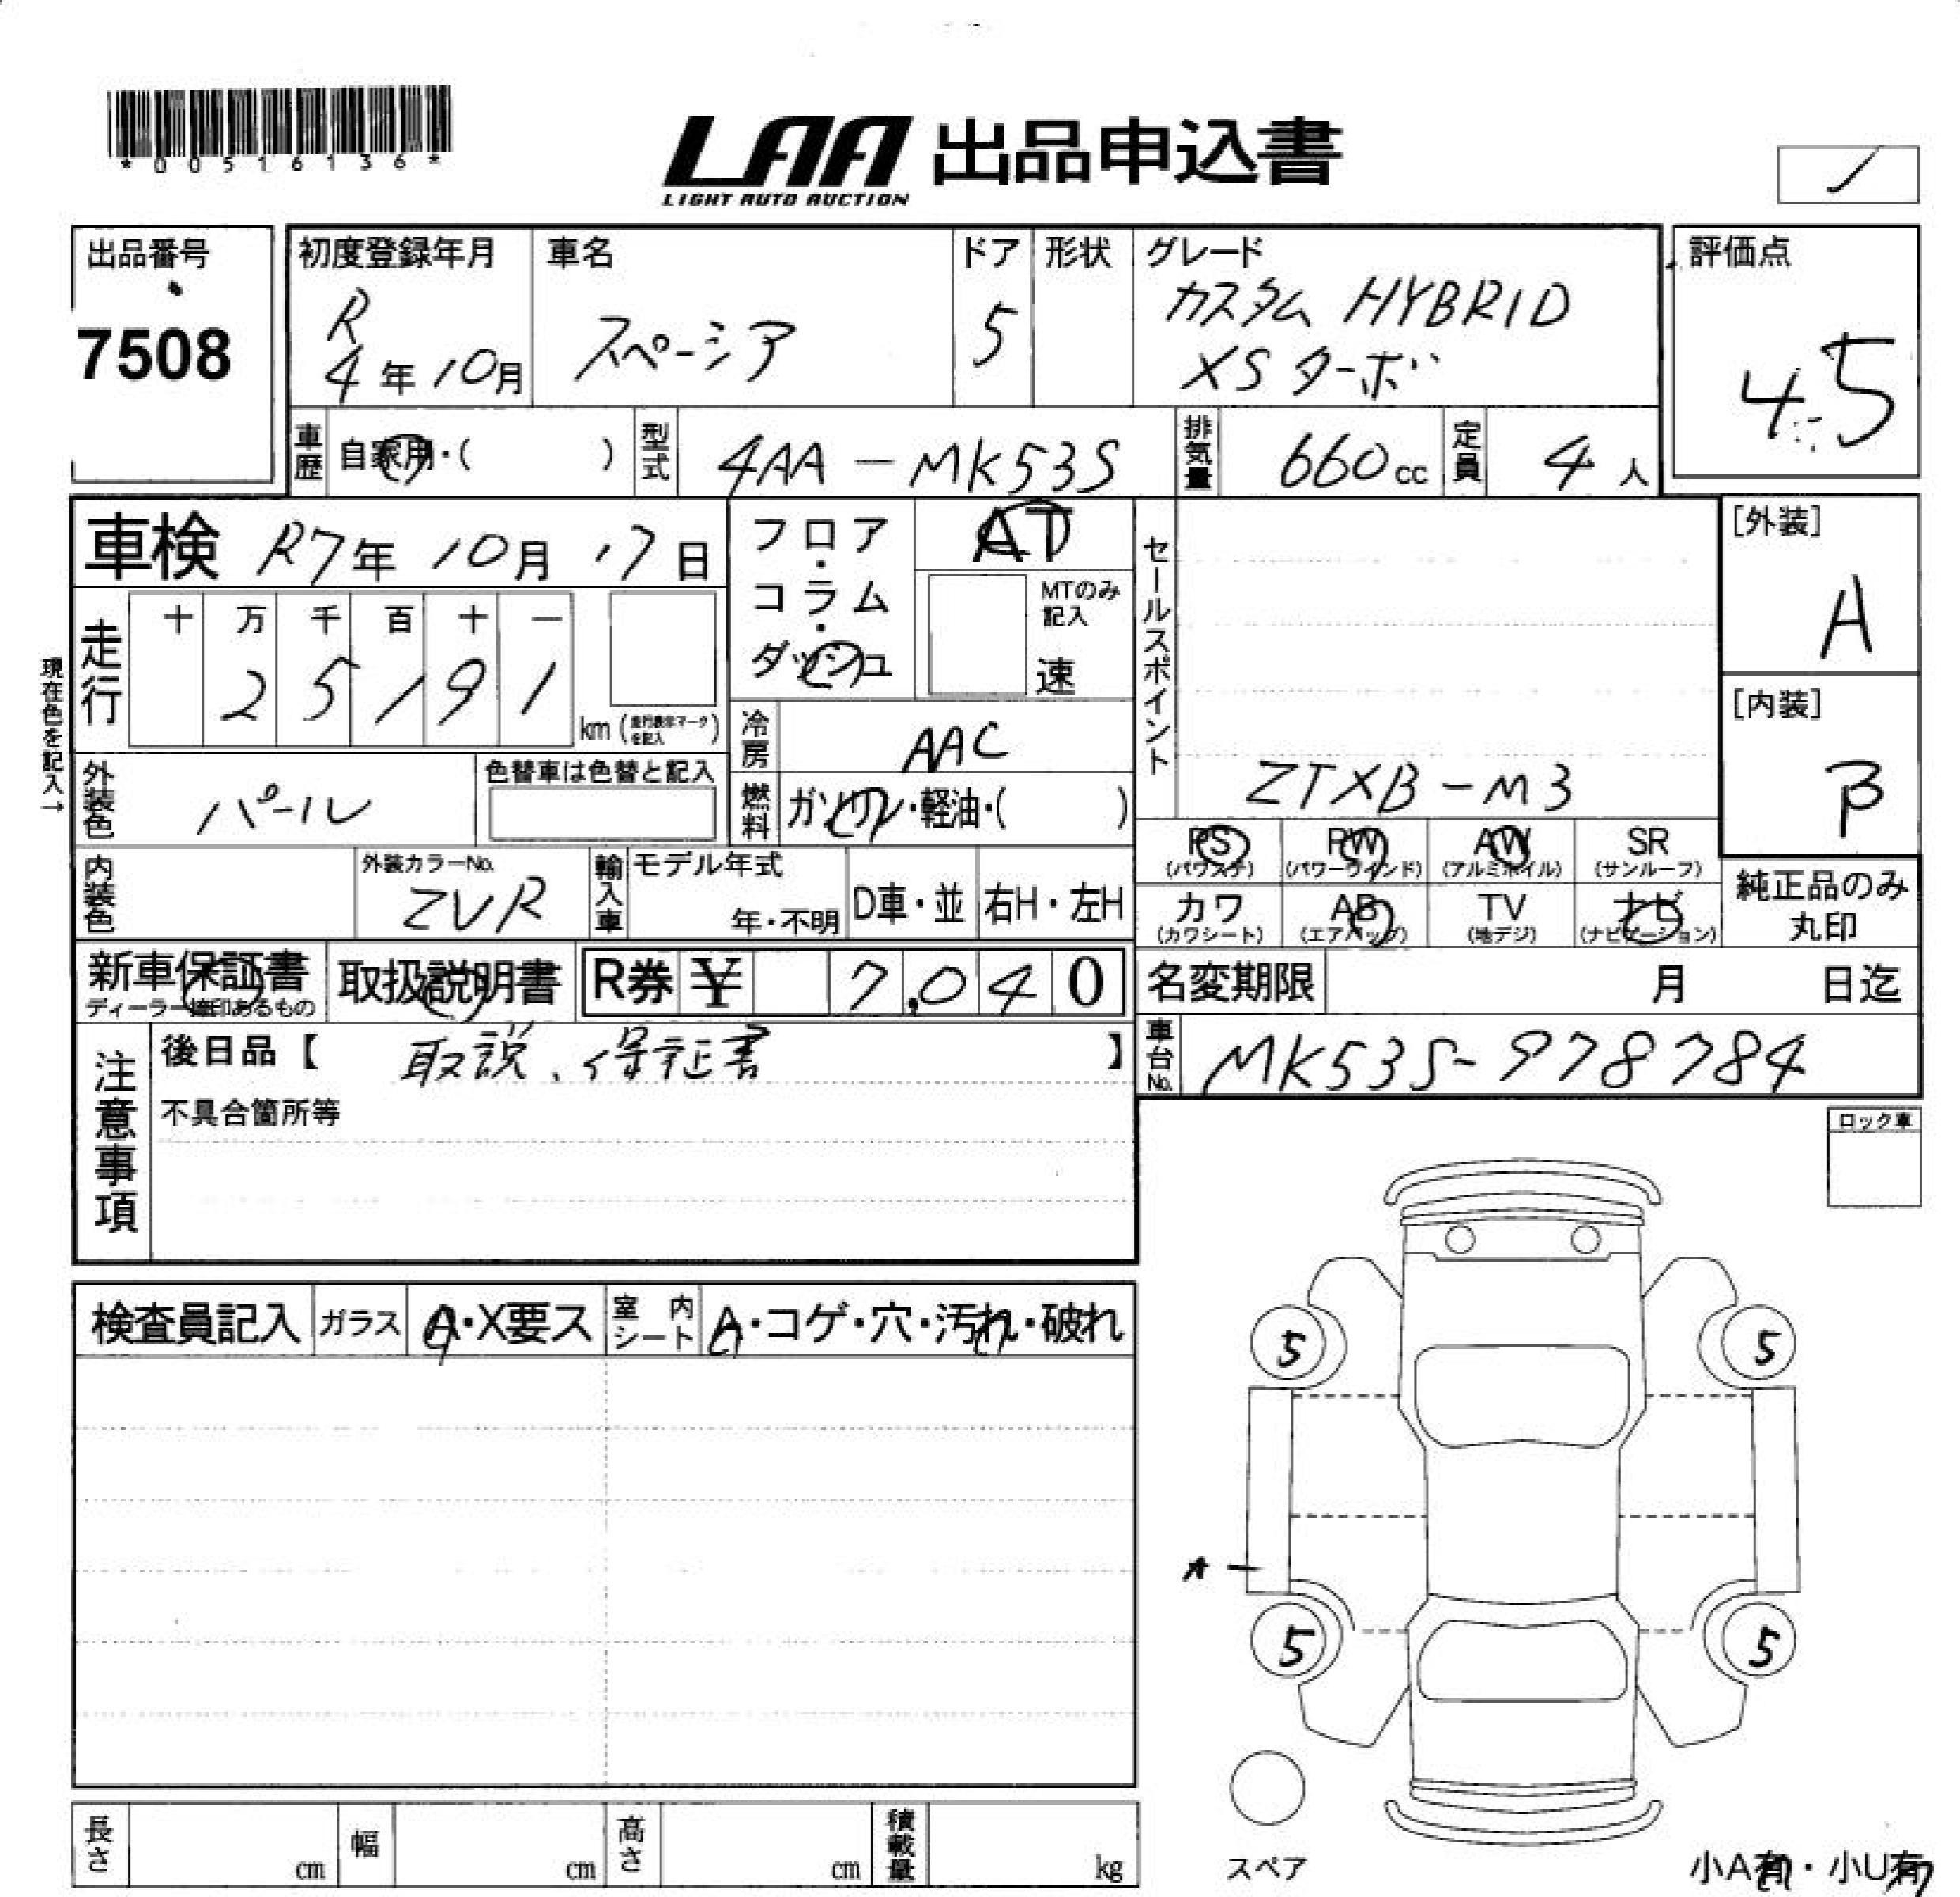 *00516136*
LAA 出品申込書
LIGHT AUTO AUCTION
出品番号
7508
初度登録年月
R
4年10月
車名
スペーシア
ドア
5
形状
グレード
カスタム HYBRID
XS ターボ
評価点
4.5
車歴
自家用・( )
型式
4AA-MK53S
排気量
660cc
定員
4人
車検 R7年 10月 17日
現在色を記入→
走行
十 万 千 百 十 一
2 5 1 9 1
km(走行表示マークを記入)
フロア・コラム・ダッシュ
AT
MTのみ記入
速
冷房
AAC
燃料
ガソリン・軽油・( )
外装色
パール
色替車は色替と記入
内装色
外装カラーNo.
ZVR
輸入車
モデル年式
年・不明
D車・並
右H・左H
セールスポイント
ZTXB-M3
[外装]
A
[内装]
B
PS
(パワステ)
PW
(パワーウインド)
AW
(アルミホイル)
SR
(サンルーフ)
カワ
(カワシート)
AB
(エアバッグ)
TV
(地デジ)
ナビ
(ナビゲーション)
純正品のみ
丸印
新車保証書
ディーラー捺印あるもの
取扱説明書
R券 ¥ 7,040
名変期限 月 日迄
車台No.
MK53S-978784
注意事項
後日品【 取説、保証書 】
不具合箇所等
ロック車
検査員記入
ガラス
A・X要ス
室内シート
A・コゲ・穴・汚れ・破れ
5
5
A
5
5
スペア
小A有・小U有
長さ
cm
幅
cm
高さ
cm
積載量
kg